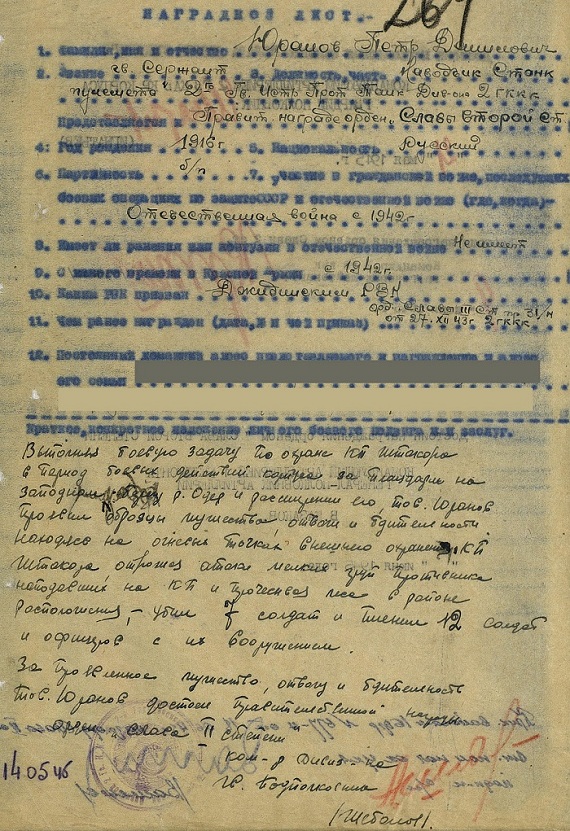 НАГРАДНОЙ ЛИСТ.-
1. Фамилия, имя и отчество Юранов Петр Данилович
2. Звание гв. Сержант 3. Должность, часть Наводчик Станк
пулемета 2го Гв. Истр. Прот. Танк. Див-она 2 гккг.
Представляется к Правит. награде орден „Славы второй ст."
4. Год рождения 1916 г 5. Национальность русский
6. Партийность б/п 7. Участие в гражданской войне, последующих
боевых операциях по защите СССР и отечественной войне (где, когда)-
Отечественная война с 1942г
8. Имеет ли ранения или контузии в отечественной войне Не имеет
9. С какого времени в Красной Армии с 1942г.
10. Каким РВК призван Джидинским РВК
11. Чем ранее награжден (дата, № и чей приказ) орд. Славы III ст пр 31/н
от 27.XII 43г. 2гккк.
12. Постоянный домашний адрес представляемого к награждению и адрес
его семьи
Краткое, конкретное изложение личного боевого подвига или заслуг.
Выполняя боевую задачу по охране КП штакора
в период боевых действий корпуса за плацдарм на
западном берегу р. Одер и расширении его, тов. Юранов
проявил образцы мужества, отваги и бдительности
находясь на огневых точках внешнего охранения КП
штакора отражая атаки мелких групп противника
нападавших на КП и прочесывая леса в районе
расположения, – убил 7 солдат и пленил 12 солдат
и офицеров с их вооружением.
За проявленное мужество, отвагу и бдительность
тов. Юранов достоин Правительственной награды
ордена Слава II степени
Ком-р Дивиз-на
гв. Подполковник
14.05.45